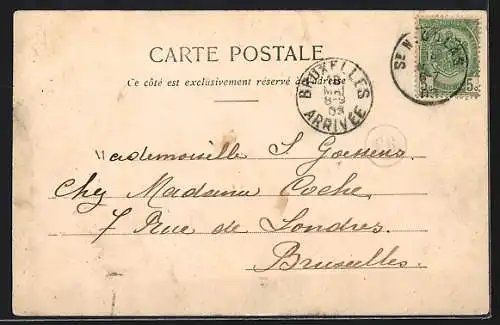 CARTE POSTALE
Ce côté est exclusivement réservé à l'adresse
BRUXELLES
18
MAI
8-9
ARRIVÉE
Mademoiselle S Goossens
Chez Madame Coché
7 Rue de Londres
Bruxelles.